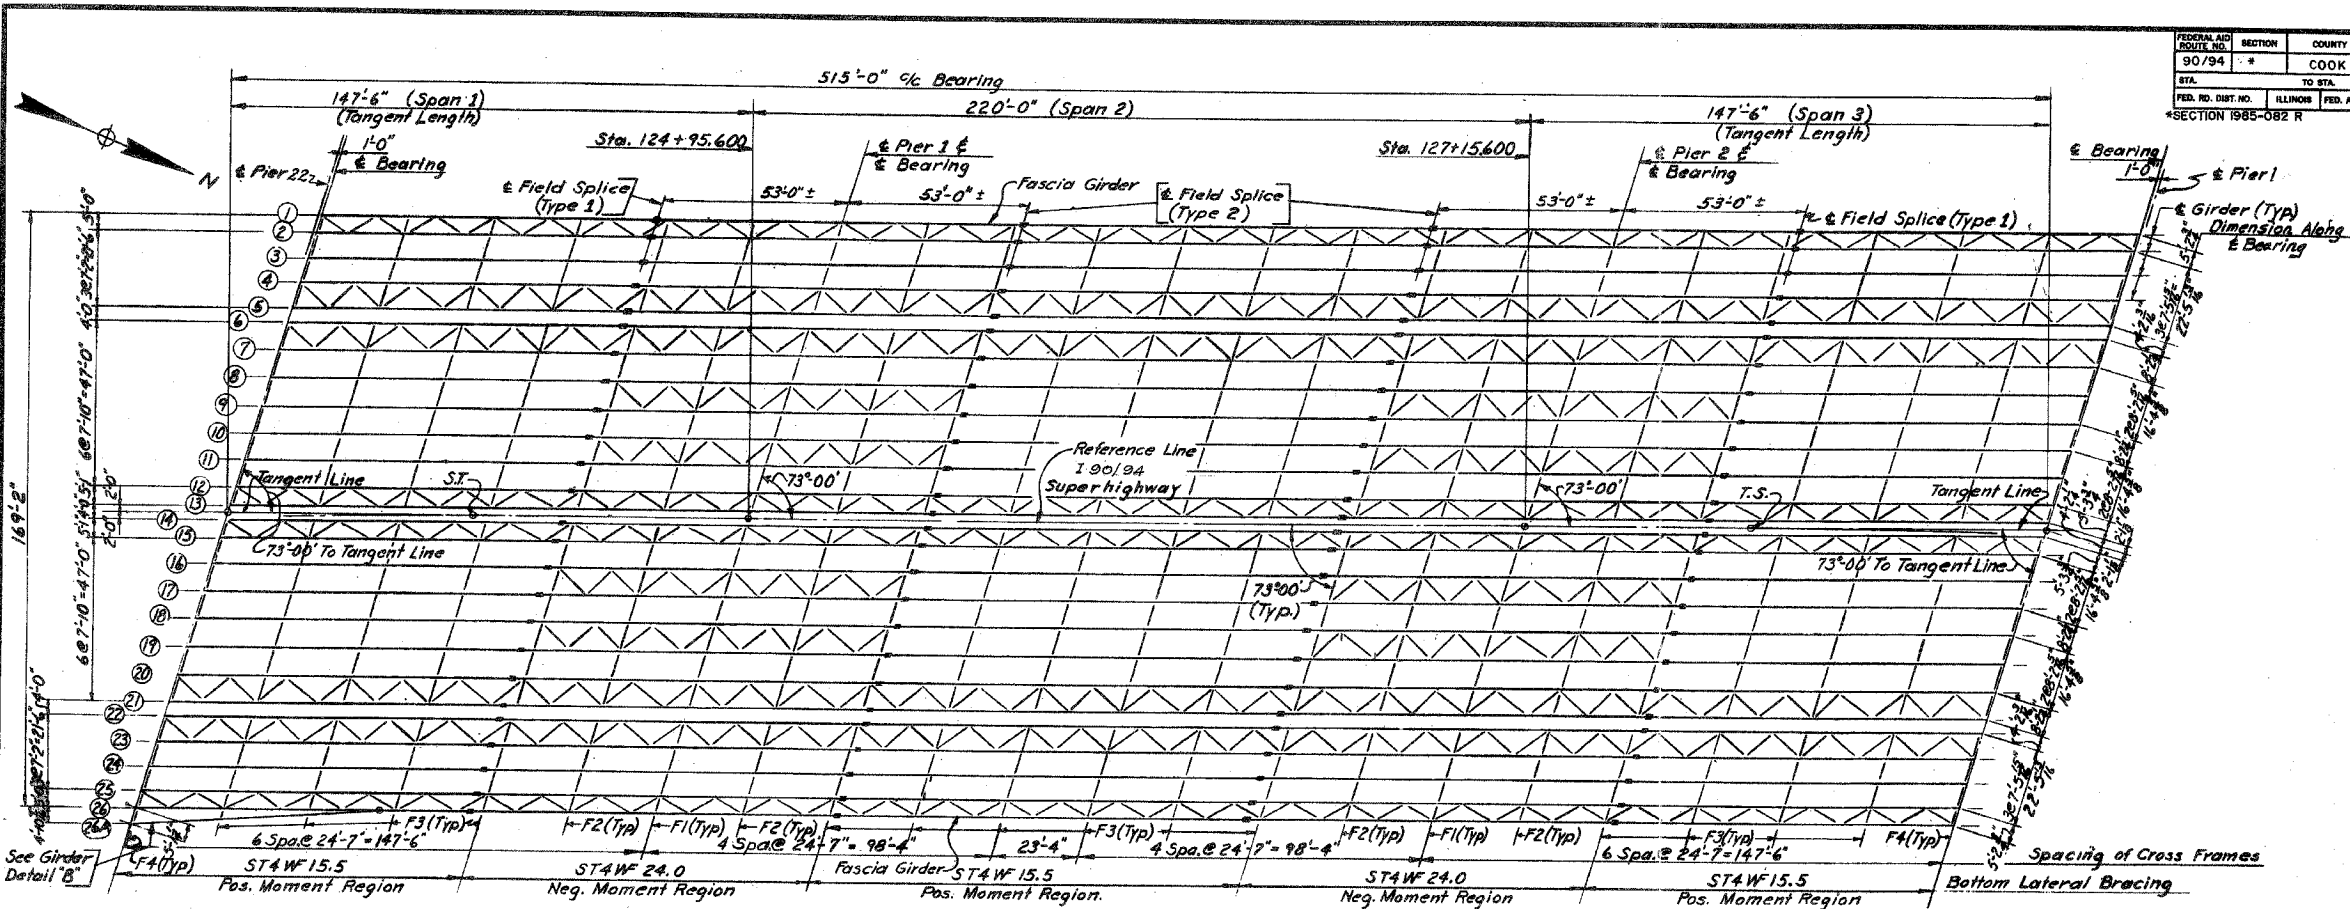 FEDERAL AID ROUTE NO. SECTION COUNTY
90/94 * COOK
STA. TO STA.
FED. RD. DIST. NO. ILLINOIS FED. A
*SECTION 1985-082 R
515'-0" c/c Bearing
147'-6" (Span 1)
(Tangent Length)
220'-0" (Span 2)
147'-6" (Span 3)
(Tangent Length)
Sta. 124+95.600
Sta. 127+15.600
N
℄ Pier 22
1'-0"
℄ Bearing
℄ Field Splice
(Type 1)
℄ Pier 1 &
℄ Bearing
53'-0" ±
53'-0" ±
Fascia Girder
℄ Field Splice
(Type 2)
℄ Pier 2 &
℄ Bearing
53'-0" ±
53'-0" ±
℄ Field Splice (Type 1)
℄ Bearing
1'-0"
℄ Pier 1
℄ Girder (Typ)
Dimension Along
℄ Bearing
1
2
3
4
5
6
7
8
9
10
11
12
13
14
15
16
17
18
19
20
21
22
23
24
25
26
26A
169'-2"
5'-0"
4'-0"
6@7'-10"=47'-0"
2'-0"
2'-0"
6@7'-10"=47'-0"
4'-0"
Tangent Line
S.T.
73°-00' To Tangent Line
73°-00'
Reference Line
I 90/94
Superhighway
73°00'
(Typ.)
73°-00'
T.S.
Tangent Line
73°-00' To Tangent Line
See Girder
Detail "B"
F4(Typ)
6 Spa.@ 24'-7"=147'-6"
F3(Typ)
F2(Typ)
F1(Typ)
F2(Typ)
4 Spa.@ 24'-7"= 98'-4"
Fascia Girder
23'-4"
F3(Typ)
4 Spa.@ 24'-7"=98'-4"
F2(Typ)
F1(Typ)
F2(Typ)
F3(Typ)
6 Spa.@ 24'-7=147'-6"
F4(Typ)
Spacing of Cross Frames
ST4WF15.5
Pos. Moment Region
ST4WF24.0
Neg. Moment Region
ST4WF15.5
Pos. Moment Region.
ST4WF24.0
Neg. Moment Region
ST4WF15.5
Pos. Moment Region
Bottom Lateral Bracing